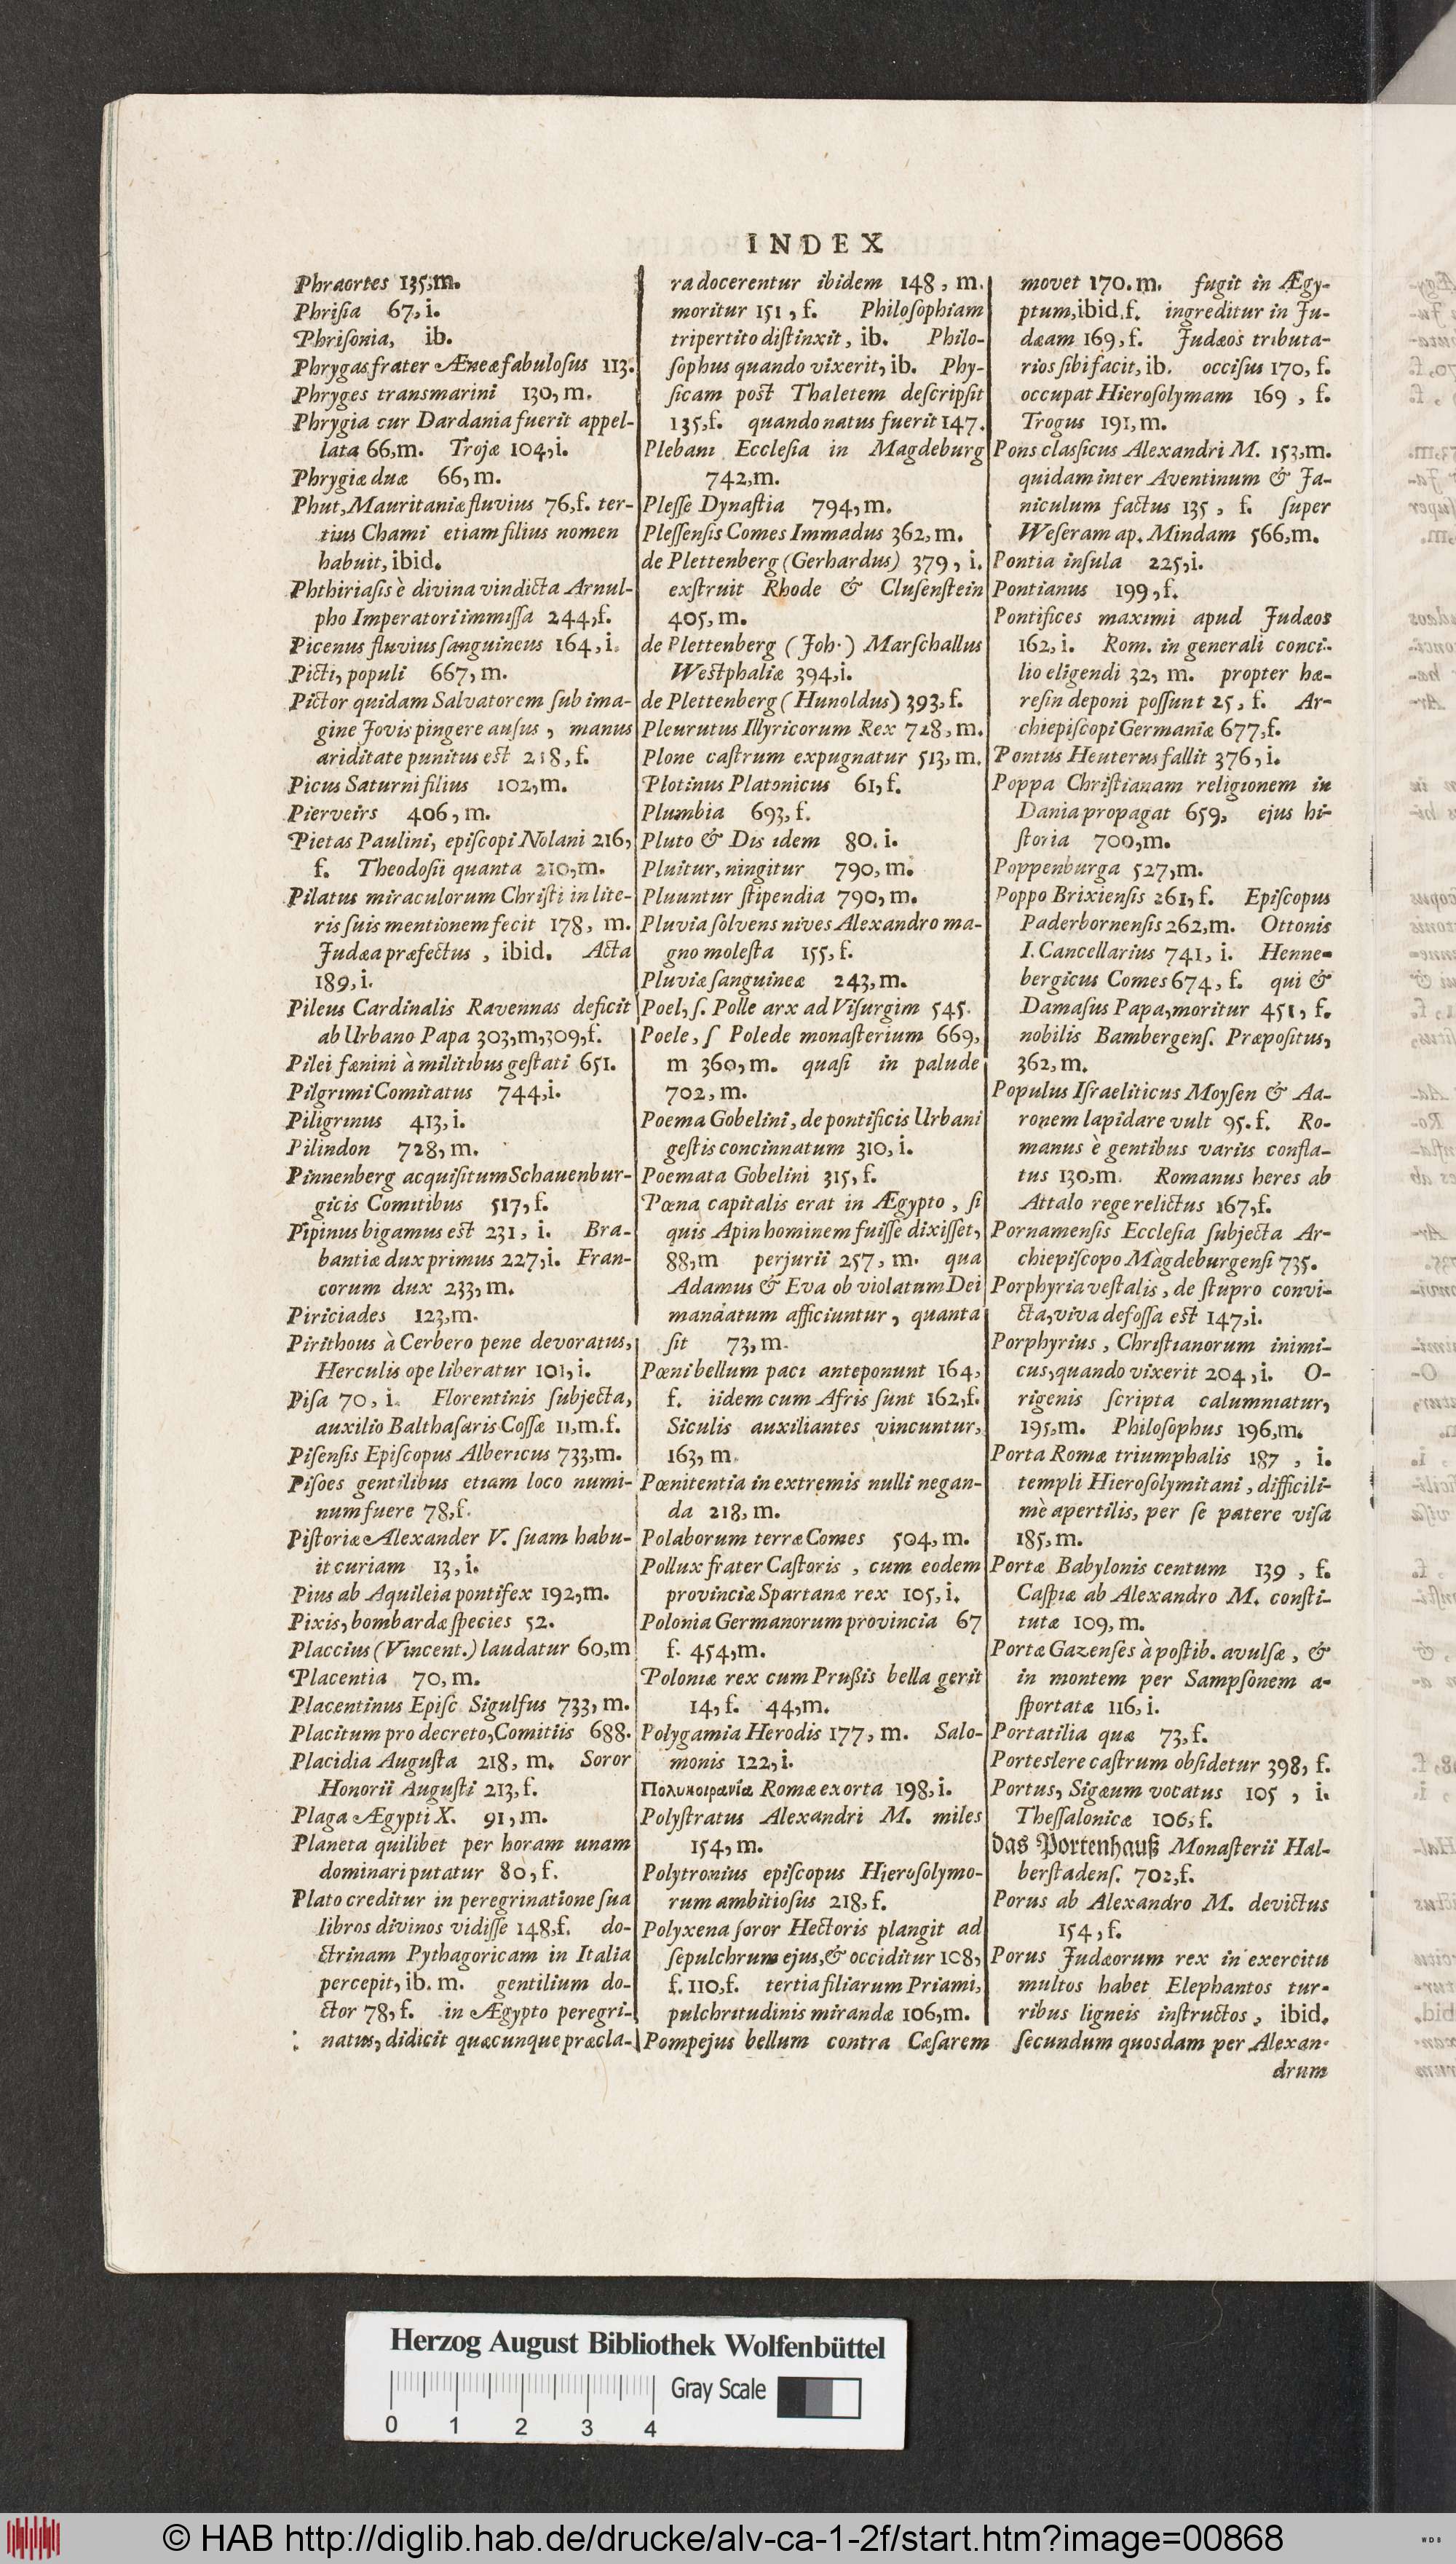 INDEX
Phraortes 135,m.
Phriſia 67,i.
Phriſonia, ib.
Phrygas frater Æneæ fabuloſus 113.
Phryges transmarini 130,m.
Phrygia cur Dardania fuerit appel-
lata 66,m. Trojæ 104,i.
Phrygiæ duæ 66,m.
Phut, Mauritaniæ fluvius 76,f. ter-
tius Chami etiam filius nomen
habuit, ibid.
Phthiriaſis è divina vindicta Arnul-
pho Imperatori immiſſa 244,f.
Picenus fluvius ſanguineus 164,i.
Picti, populi 667,m.
Pictor quidam Salvatorem ſub ima-
gine Jovis pingere auſus, manus
ariditate punitus est 218,f.
Picus Saturni filius 102,m.
Pierveirs 406,m.
Pietas Paulini, epiſcopi Nolani 216,
f. Theodoſii quanta 210,m.
Pilatus miraculorum Chriſti in lite-
ris ſuis mentionem fecit 178, m.
Judæa præfectus, ibid. Acta
189,i.
Pileus Cardinalis Ravennas deficit
ab Urbano Papa 303,m,309,f.
Pilei fœnini à militibus geſtati 651.
Pilgrimi Comitatus 744,i.
Piligrinus 413,i.
Pilindon 728,m.
Pinnenberg acquiſitum Schauenbur-
gicis Comitibus 517,f.
Pipinus bigamus est 231, i. Bra-
bantiæ dux primus 227,i. Fran-
corum dux 233,m.
Piriciades 123,m.
Pirithous à Cerbero pene devoratus,
Herculis ope liberatur 101,i.
Piſa 70, i. Florentinis ſubjecta,
auxilio Balthaſaris Coſſæ 11,m.f.
Piſenſis Epiſcopus Albericus 733,m.
Piſoes gentilibus etiam loco numi-
num fuere 78,f.
Piſtoriæ Alexander V. ſuam habu-
it curiam 13,i.
Pius ab Aquileia pontifex 192,m.
Pixis, bombardæ ſpecies 52.
Placcius (Vincent.) laudatur 60,m
Placentia 70,m.
Placentinus Epiſc. Sigulfus 733,m.
Placitum pro decreto, Comitiis 688.
Placidia Auguſta 218, m. Soror
Honorii Auguſti 213,f.
Plaga Ægypti X. 91,m.
Planeta quilibet per horam unam
dominari putatur 80,f.
Plato creditur in peregrinatione ſua
libros divinos vidiſſe 148,f. do-
ctrinam Pythagoricam in Italia
percepit, ib. m. gentilium do-
ctor 78,f. in Ægypto peregri-
natus, didicit quæcunque præcla-
ra docerentur ibidem 148, m.
moritur 151, f. Philoſophiam
tripertito diſtinxit, ib. Philo-
ſophus quando vixerit, ib. Phy-
ſicam post Thaletem deſcripſit
135,f. quando natus fuerit 147.
Plebani Eccleſia in Magdeburg
742,m.
Pleſſe Dynaſtia 794,m.
Pleſſenſis Comes Immadus 362,m.
de Plettenberg (Gerhardus) 379, i.
exſtruit Rhode & Cluſenſtein
405,m.
de Plettenberg (Joh.) Marſchallus
Westphaliæ 394,i.
de Plettenberg (Hunoldus) 393,f.
Pleurutus Illyricorum Rex 728,m.
Plone caſtrum expugnatur 513,m.
Plotinus Platonicus 61,f.
Plumbia 693,f.
Pluto & Dis idem 80.i.
Pluitur, ningitur 790,m.
Pluuntur ſtipendia 790,m.
Pluvia ſolvens nives Alexandro ma-
gno moleſta 155,f.
Pluviæ ſanguineæ 243,m.
Poel, ſ. Polle arx ad Viſurgim 545.
Poele, ſ Polede monaſterium 669,
m 360,m. quaſi in palude
702,m.
Poema Gobelini, de pontificis Urbani
geſtis concinnatum 310,i.
Poemata Gobelini 315,f.
Pœna capitalis erat in Ægypto, ſi
quis Apin hominem fuiſſe dixiſſet,
88,m perjurii 257,m. qua
Adamus & Eva ob violatum Dei
mandatum afficiuntur, quanta
ſit 73,m.
Pœni bellum paci anteponunt 164,
f. iidem cum Afris ſunt 162,f.
Siculis auxiliantes vincuntur,
163, m.
Pœnitentia in extremis nulli negan-
da 218,m.
Polaborum terræ Comes 504,m.
Pollux frater Caſtoris, cum eodem
provinciæ Spartanæ rex 105,i.
Polonia Germanorum provincia 67
f. 454,m.
Poloniæ rex cum Prußis bella gerit
14,f. 44,m.
Polygamia Herodis 177,m. Salo-
monis 122,i.
Πολυκοιρανία Romæ exorta 198,i.
Polyſtratus Alexandri M. miles
154,m.
Polytronius epiſcopus Hieroſolymo-
rum ambitioſus 218,f.
Polyxena ſoror Hectoris plangit ad
ſepulchrum ejus, & occiditur 108,
f. 110,f. tertia filiarum Priami,
pulchritudinis mirandæ 106,m.
Pompejus bellum contra Cæſarem
movet 170.m. fugit in Ægy-
ptum, ibid.f. ingreditur in Ju-
dæam 169,f. Judæos tributa-
rios ſibi facit, ib. occiſus 170,f.
occupat Hieroſolymam 169, f.
Trogus 191,m.
Pons claſſicus Alexandri M. 153,m.
quidam inter Aventinum & Ja-
niculum factus 135, f. ſuper
Weſeram ap. Mindam 566,m.
Pontia inſula 225,i.
Pontianus 199,f.
Pontifices maximi apud Judæos
162,i. Rom. in generali conci-
lio eligendi 32, m. propter hæ-
reſin deponi poſſunt 25,f. Ar-
chiepiſcopi Germaniæ 677,f.
Pontus Heuterus fallit 376,i.
Poppa Chriſtianam religionem in
Dania propagat 659, ejus hi-
ſtoria 700,m.
Poppenburga 527,m.
Poppo Brixienſis 261,f. Epiſcopus
Paderbornenſis 262,m. Ottonis
I. Cancellarius 741,i. Henne-
bergicus Comes 674,f. qui &
Damaſus Papa, moritur 451,f.
nobilis Bambergenſ. Præpoſitus,
362,m.
Populus Iſraeliticus Moyſen & Aa-
ronem lapidare vult 95.f. Ro-
manus è gentibus variis confla-
tus 130,m. Romanus heres ab
Attalo rege relictus 167,f.
Pornamenſis Eccleſia ſubjecta Ar-
chiepiſcopo Magdeburgenſi 735.
Porphyria veſtalis, de ſtupro convi-
cta, viva defoſſa est 147,i.
Porphyrius, Chriſtianorum inimi-
cus, quando vixerit 204,i. O-
rigenis ſcripta calumniatur,
195,m. Philoſophus 196,m.
Porta Romæ triumphalis 187, i.
templi Hieroſolymitani, difficili-
mè apertilis, per ſe patere viſa
185,m.
Portæ Babylonis centum 139, f.
Caſpiæ ab Alexandro M. conſti-
tutæ 109,m.
Portæ Gazenſes à poſtib. avulſæ, &
in montem per Sampſonem a-
ſportatæ 116,i.
Portatilia quæ 73,f.
Porteslere caſtrum obſidetur 398, f.
Portus, Sigæum vocatus 105, i.
Theſſalonicæ 106,f.
das Portenhauß Monaſterii Hal-
berſtadenſ. 702,f.
Porus ab Alexandro M. devictus
154,f.
Porus Judæorum rex in exercitu
multos habet Elephantos tur-
ribus ligneis inſtructos, ibid.
ſecundum quosdam per Alexan-
drum
Herzog August Bibliothek Wolfenbüttel
Gray Scale
0 1 2 3 4
© HAB http://diglib.hab.de/drucke/alv-ca-1-2f/start.htm?image=00868
WDB